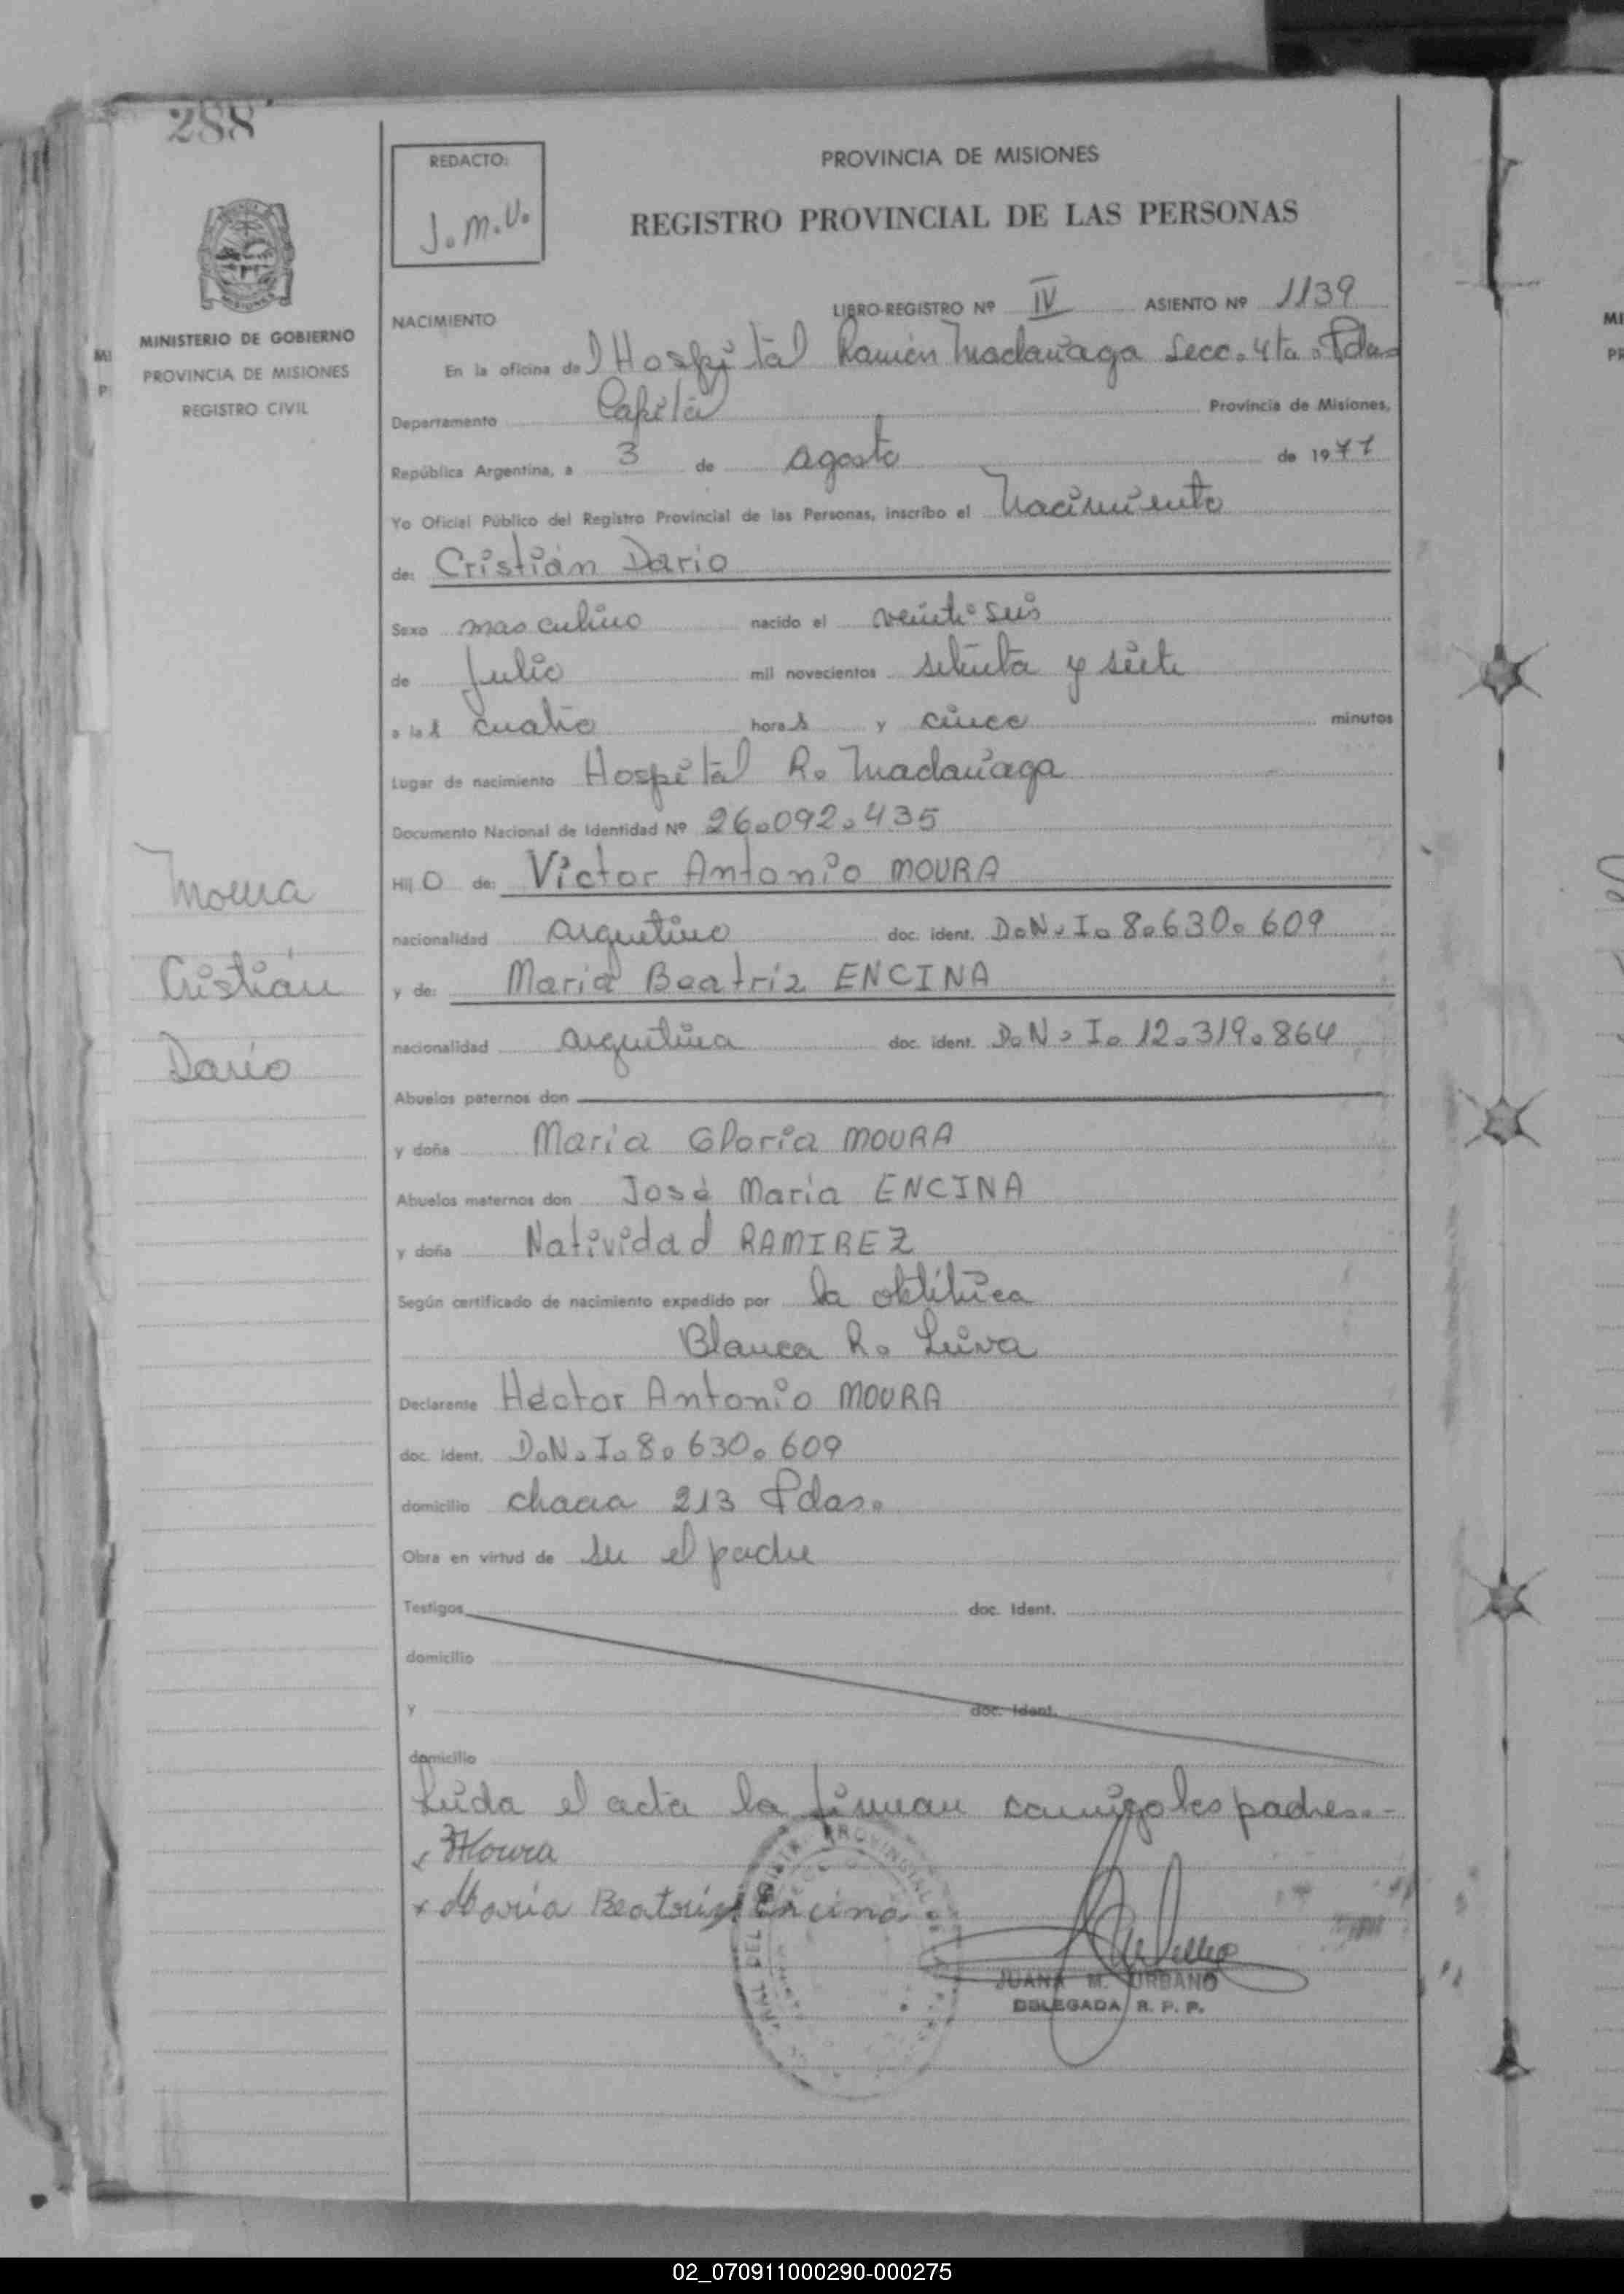 288
REDACTO:
J.M.U.
PROVINCIA DE MISIONES
REGISTRO PROVINCIAL DE LAS PERSONAS
MINISTERIO DE GOBIERNO
PROVINCIA DE MISIONES
REGISTRO CIVIL
LIBRO-REGISTRO Nº IV ASIENTO Nº 1139
NACIMIENTO
En la oficina del Hospital Ramón Madariaga Secc. 4ta. Pdas
Departamento Capital Provincia de Misiones,
República Argentina, a 3 de agosto de 1977
Yo Oficial Público del Registro Provincial de las Personas, inscribo el Nacimiento
de: Cristián Dario
Sexo masculino nacido el veintiseis
de Julio mil novecientos setenta y siete
a las cuatro horas y cinco minutos
Lugar de nacimiento Hospital R. Madariaga
Documento Nacional de Identidad Nº 26.092.435
Hijo de: Victor Antonio MOURA
nacionalidad argentino doc. ident. D.N.I. 8.630.609
y de: Maria Beatriz ENCINA
nacionalidad argentina doc. ident. D.N.I. 12.319.864
Abuelos paternos don
y doña Maria Gloria MOURA
Abuelos maternos don José Maria ENCINA
y doña Natividad RAMIREZ
Según certificado de nacimiento expedido por la obstétrica
Blanca R. Leiva
Declarante Héctor Antonio MOURA
doc. ident. D.N.I. 8.630.609
domicilio chacra 213 Pdas.
Obra en virtud de ser el padre
Testigos doc. ident.
domicilio
y doc. ident.
domicilio
Leída el acta la firman conmigo los padres.-
x Moura
x Maria Beatriz Encina
JUANA M. URBANO
DELEGADA R. P. P.
Moura
Cristián
Dario
02_070911000290-000275